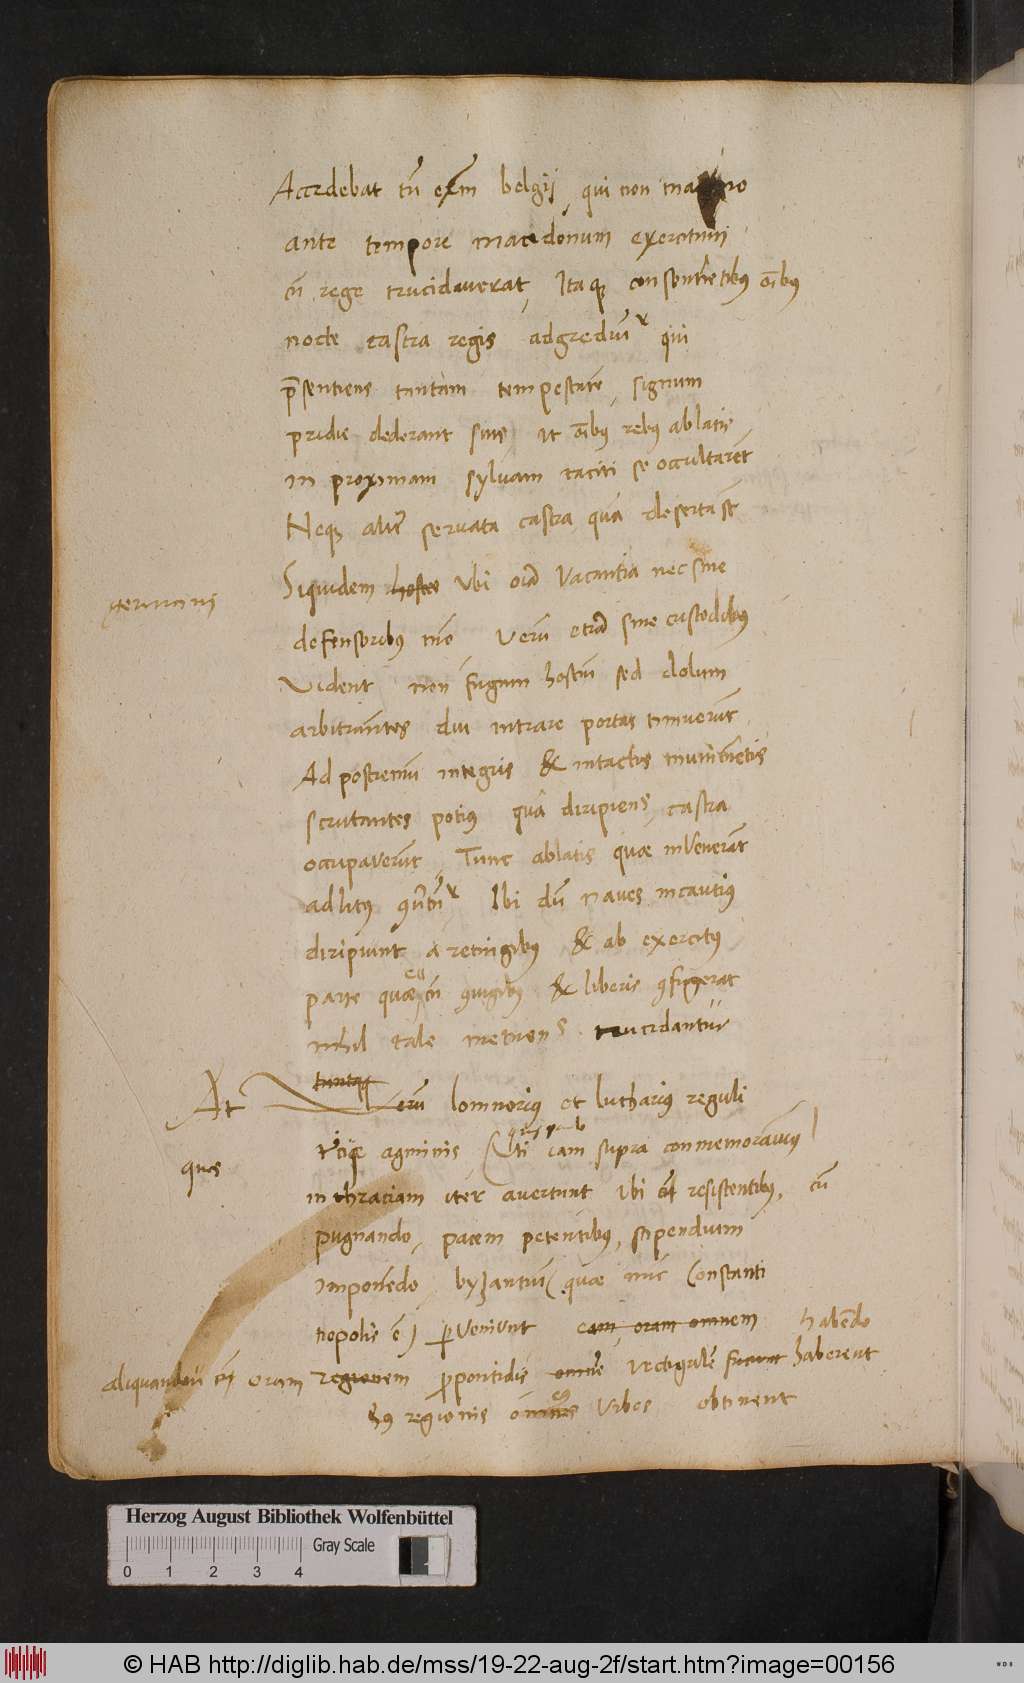 Accedebat tū exm belgij, qui non ma no
ante tempore macedonum exercitum
cū rege trucidaverat, Itaq consentietibus oībus
nocte castra regis adgrediūr qui
p̄sentiens tantam tempestatē, signum
pridie dederant suis, ut oībus rebus ablatis,
in proximam sylvam taciti se occultarēt
Neq alit̄ servata castra quā deserta st̄
Siquidem hostes Ubi oīa vacantia nec sine
germanis
defensoribus mō, Verū etiā sine custodibus
Vident non fugam hostiū sed dolum
arbitrantes diu intrare portas timuerūt
Ad postremū integris & intactis munimētis
scrutantes potius quā diripiens, castra
occupaverūt, Tunc ablatis quæ invenerāt
ad litus Ibi dū naves incautius
diripiunt a remigibus & ab exercitus
parte quæ eū cū 9iugibus & liberis 9fugerat
nihil tale metuens trucidantur
tantaq
At Verū lomnorius et lutharius reguli
quispiab
agminis, (Uti iam supra conmemoravimus)
quos
in thraciam iter avertunt Ubi resistentibus, cū
pugnando, pacem petentibus, stipendium
imponēdo, byzantiū (quæ nūc Constanti
nopolis ē) perveniunt eam oram omnem habēdo
aliquandiu oram regionem propontidis omnē vectigalē haberent
regionis omnes urbes obtinent
Herzog August Bibliothek Wolfenbüttel
Gray Scale
0 1 2 3 4
© HAB http://diglib.hab.de/mss/19-22-aug-2f/start.htm?image=00156